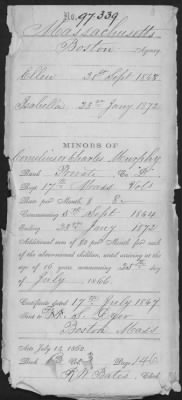 No. 97.339
Massachusetts
Boston Agency
Ellen 28th Sept 1868
Isabella 28th Jany 1872
MINORS OF
Cornelius Charles Murphy
Rank Private Co.
Regt 17th Mass Vols
Rate per Month, $ 8.
Commencing 5th Sept 1864
Ending 28th Jany 1872
Additional sum of $2 per month for each
of the abovenamed children, until arriving at the
age of 16 years commencing 25th
of July 1866.
Certificate dated 17th July 1867
Sent to
Boston Mass
Act July 14, 1862
Book Vol. 3 Page 146
R W Bates, Clerk